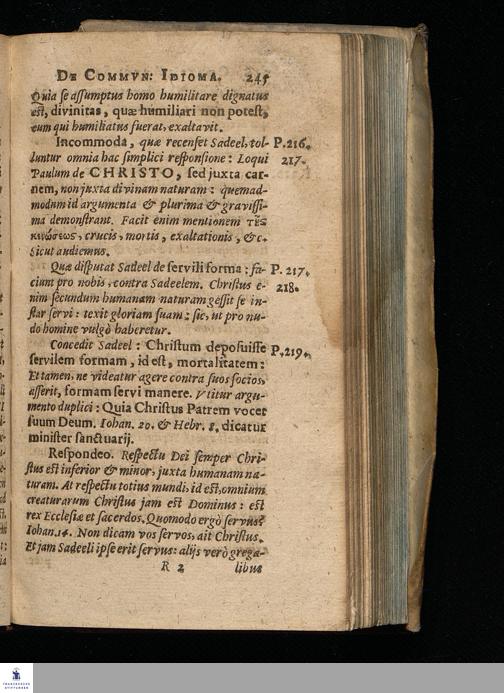 DE COMMVN: IDIOMA. 245
Quia se assumptus homo humilitare dignatus
est, divinitas, quæ humiliari non potest,
eum qui humiliatus fuerat, exaltavit.
Incommoda, quæ recenset Sadeel, tol- P. 216.
luntur omnia hac simplici responsione: Loqui 217.
Paulum de CHRISTO, sed juxta car-
nem, non juxta divinam naturam: quemad-
modum id argumenta & plurima & gravissi-
ma demonstrant. Facit enim mentionem τῆς
κενώσεως, crucis, mortis, exaltationis, &c.
Sicut audiemus.
Quæ disputat Sadeel de servili forma: fa- P. 217.
cium pro nobis, contra Sadeelem. Christus e- 218.
nim secundum humanam naturam gessit se in-
star servi: texit gloriam suam: sic, ut pro nu-
do homine vulgò haberetur.
Concedit Sadeel: Christum deposuisse P. 219.
servilem formam, id est, mortalitatem:
Et tamen, ne videatur agere contra suos socios,
asserit, formam servi manere. Vtitur argu-
mento duplici: Quia Christus Patrem vocet
suum Deum. Iohan. 20. & Hebr. 8. dicatur
minister sanctuarij.
Respondeo. Respectu Dei semper Chri-
stus est inferior & minor, juxta humanam na-
turam. At respectu totius mundi, id est, omnium
creaturarum Christus jam est Dominus: est
rex Ecclesiæ et sacerdos. Quomodo ergò servus?
Iohan. 14. Non dicam vos servos, ait Christus.
Et jam Sadeeli ipse erit servus: alijs verò grega-
R 2 libus
FRANCKESCHE
STIFTUNGEN